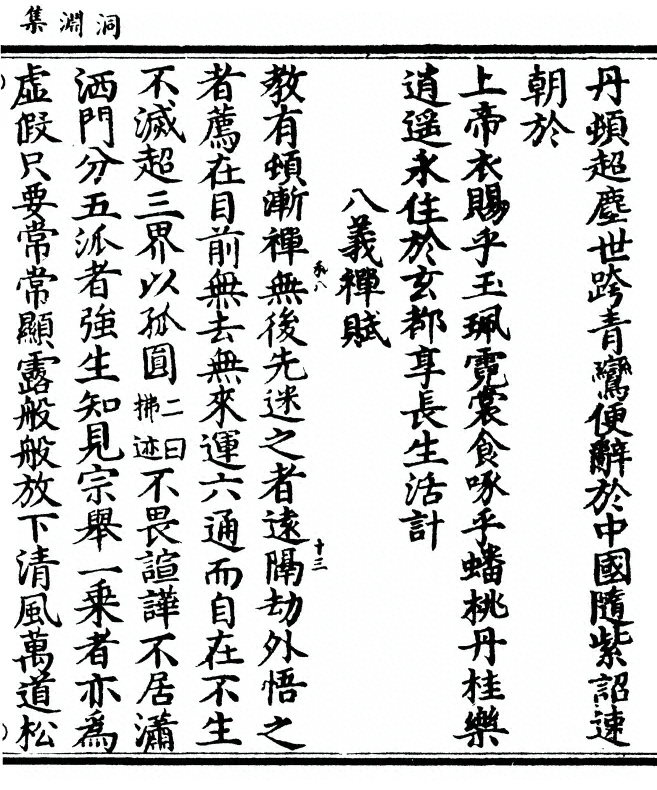 洞淵集
丹頓超塵世跨青鸞便辭於中國隨紫詔速
朝於
上帝衣賜乎玉珮霓裳食啄乎蟠桃丹桂樂
逍遥永住於玄都享長生活計
八義禪賦
教有頓漸禪無後先迷之者遠隔劫外悟之
者薦在目前無去無來運六通而自在不生
不滅超三界以孤圓二曰拂迹不畏諠譁不居瀟
洒門分五派者強生知見宗舉一乗者亦爲
虛假只要常常顯露般般放下清風萬道松
十三